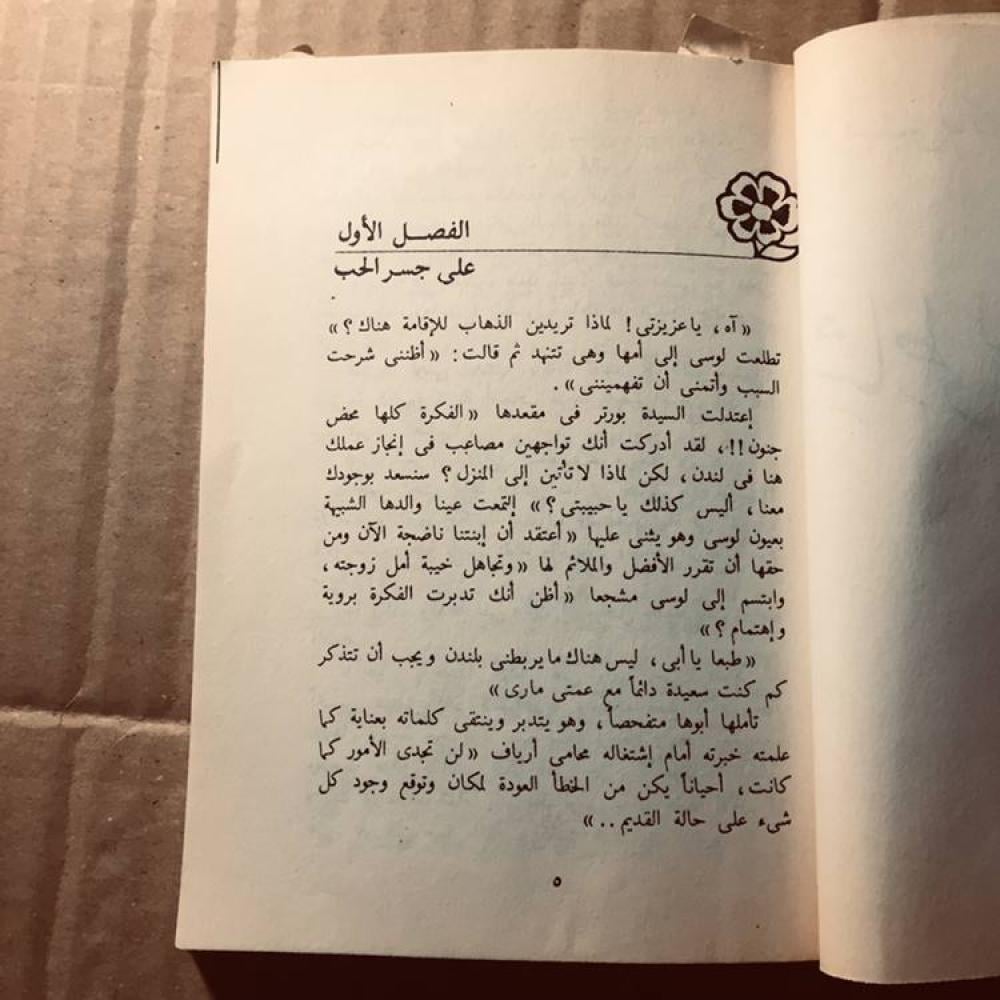 الفصـل الأول
على جسر الحب
«آه، ياعزيزتى! لماذا تريدين الذهاب للإقامة هناك؟»
تطلعت لوسى إلى أمها وهى تتنهد ثم قالت: «أظننى شرحت
السبب وأتمنى أن تفهميننى».
إعتدلت السيدة بورتر فى مقعدها «الفكرة كلها محض
جنون!!، لقد أدركت أنك تواجهين مصاعب فى إنجاز عملك
هنا فى لندن، لكن لماذا لا تأتين إلى المنزل؟ سنسعد بوجودك
معنا، أليس كذلك ياحبيبتى؟» إلتمعت عينا والدها الشبيهة
بعيون لوسى وهو يثنى عليها «أعتقد أن إبنتنا ناضجة الآن ومن
حقها أن تقرر الأفضل والملائم لها «وتجاهل خيبة أمل زوجته،
وابتسم إلى لوسى مشجعا «أظن أنك تدبرت الفكرة بروية
وإهتمام؟»
«طبعا يا أبى، ليس هناك مايربطنى بلندن ويجب أن تتذكر
كم كنت سعيدة دائماً مع عمتى مارى»
تأملها أبوها متفحصاً، وهو يتدبر وينتقى كلماته بعناية كما
علمته خبرته أمام إشتغاله محامى أرياف «لن تجدى الأمور كما
كانت، أحياناً يكن من الخطأ العودة لمكان وتوقع وجود كل
شىء على حالة القديم..»
٥